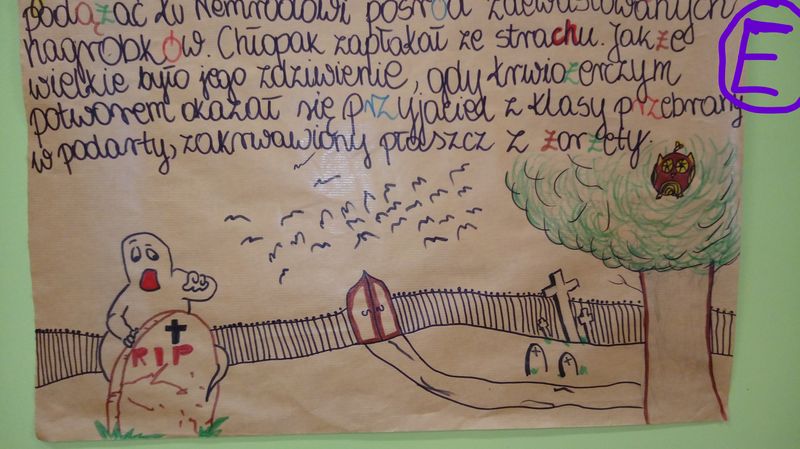 podążać ku Nemrodowi pośród zdewastowanych
nagrobków. Chłopak zapłakał ze strachu. Jakże
wielkie było jego zdziwienie, gdy krwiożerczym
potworem okazał się przyjaciel z klasy przebrany
w podarty, zakrwawiony płaszcz z żorżety.
E
RIP